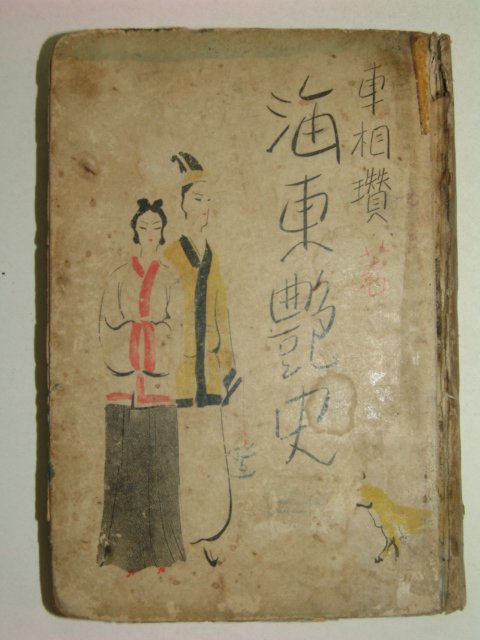 車相瓚
著
海東艶史